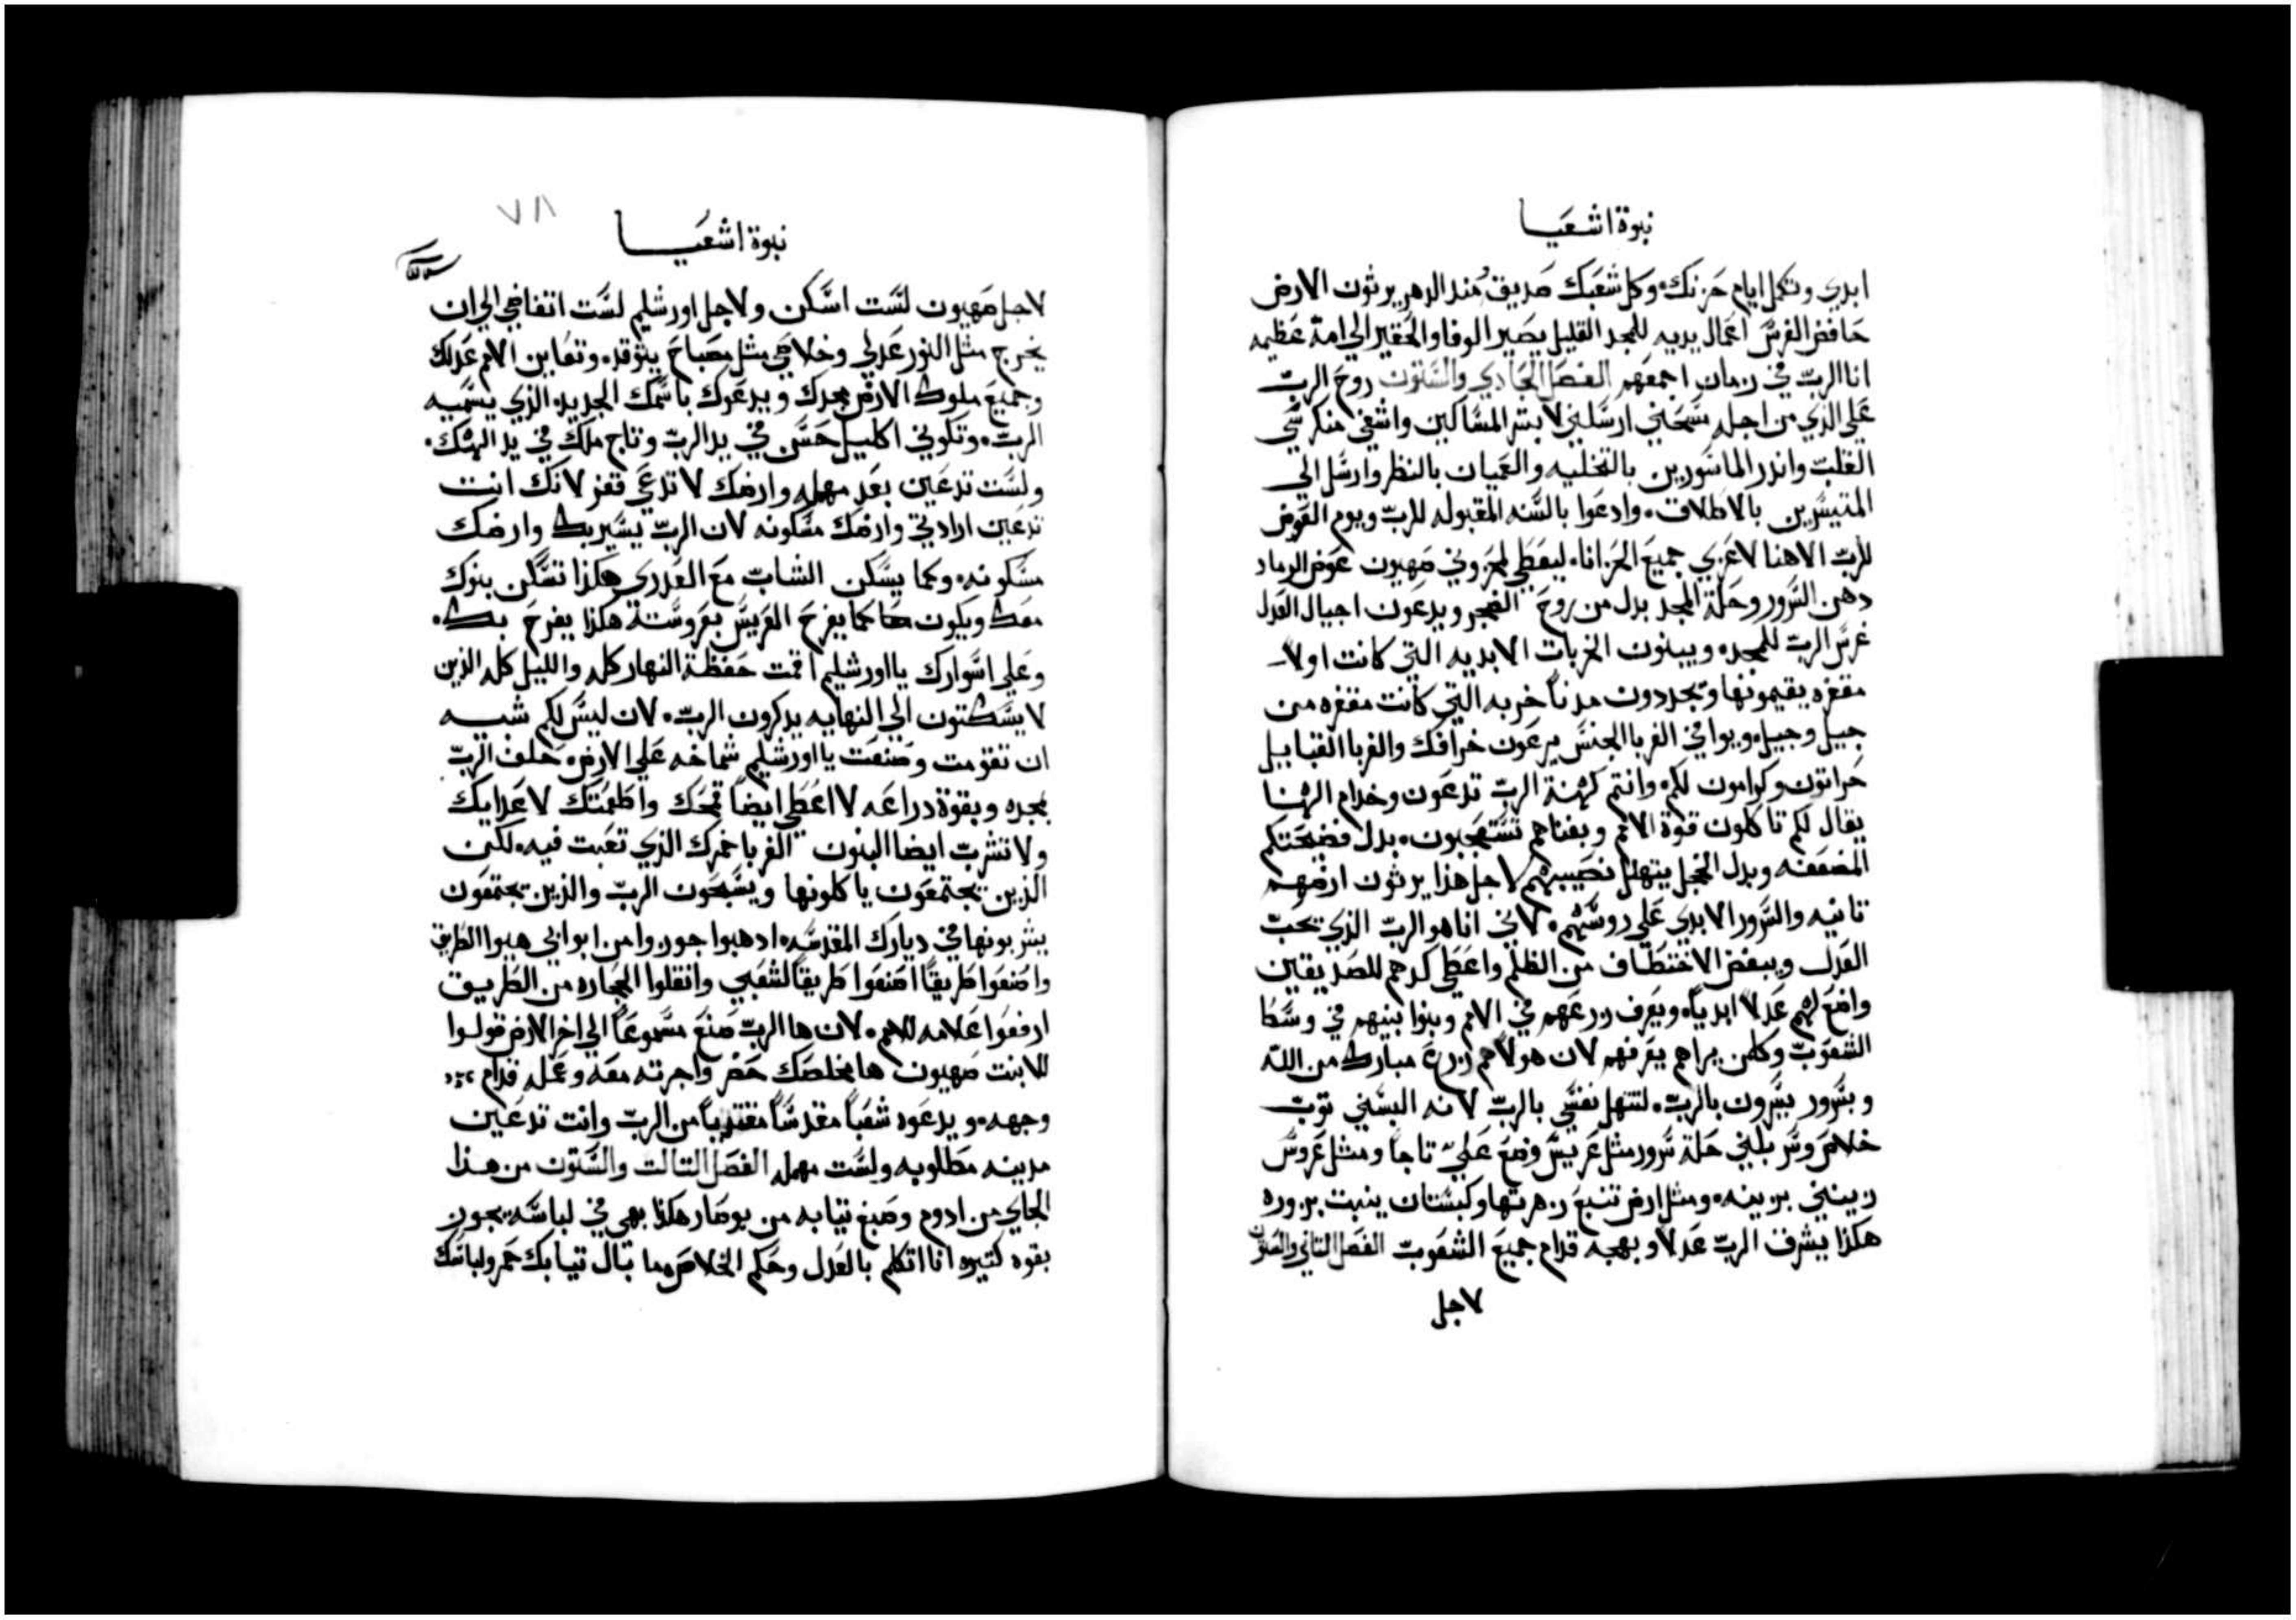 نبوة اشعيا
ابدي وتكمل ايام حزنك. وكل شعبك صديق ومند الدهر يرثون الارض
حافض الغرس اعمال يديه للمجد القليل يصير الوفا والحقير الي امة عظيمه
انا الرب في زمان اجمعهم الفصل الحادي والستون روح الرب
علي الذي من اجله مسحني ارسلني لابشر المساكين واشفي منكرسي
القلب واندر الماسورين بالتخليه والعميان بالنظر وارسل الي
المتيسرين بالاطلاق. وادعوا بالسنه المقبوله للرب ويوم العوض
للرب الاهنا لاعزي جميع الحزانا. ليعطي لمحزوني صهيون عوض الرماد
دهن السرور وحلة المجد بدل من روح الضجر ويدعون اجيال العدل
غرس الرب للمجد. ويبنون الخربات الابديه التي كانت اولا
مقفزه يقيمونها ويجددون مدناً خربه التي كانت مقفزه من
جيل وجيل. ويوافي الغربا الجنس يرعون خرافك والغربا القبايل
حراتون وكرامون لكم. وانتم كهنة الرب تدعون وخدام الهنا
يقال لكم تاكلون قوة الامم وبغناهم تستعجبون. بدل فضيحتكم
المضعفه وبدل الخجل يتهلل نصيبهم لاجل هذا يرثون ارضهم
تانيه والسرور الابدي علي روسهم. لاني انا هو الرب الذي تحب
العدل ويبغض الاختطاف من الظلم واعطي كدهم للصديقين
واضع لهم عدلا ابدياً. ويعرف زرعهم في الامم وبنوا بنيهم في وسط
الشعوب وكلمن يراهم يعرفهم لان هولاهم زرع مبارك من الله
وبسرور يسرون بالرب. لتتهلل نفسي بالرب لانه البسني توب
خلاص وسربلني حلة سرور مثل عريس وضع عليّ تاجاً ومثل عروس
زينني بزينه. ومثل ارض تنبع زهرتها وكبستان ينبت بزوره
هكذا يشرف الرب عدلا وبهجه قدام جميع الشعوب الفصل التاني والستون
لاجل
٧٨
نبوة اشعيا
لاجل صهيون لست اسكن ولاجل اورشليم لست اتغاضي الي ان
يخرج مثل النور عدلي وخلاصي مثل مصباح يتوقد. وتعاين الامم عدلك
وجميع ملوك الارض مجدك ويدعوك باسمك الجديد الذي يسميه
الرب. وتكوني اكليل حسن في يد الرب وتاج ملك في يد الهك.
ولست تدعين بعد مهمله وارضك لا تدعي قفز لانك انت
تدعين ارادتي وارضك مسكونه لان الرب يسير بك وارضك
مسكونه. وكما يسكن الشاب مع العدري هكذا تسكن بنوك
معك ويكون كما يفرح العريس بعروسته هكذا يفرح بك.
وعلي اسوارك يا اورشليم اقمت حفظة النهار كله والليل كله الذين
لا يسكتون الي النهايه يدكرون الرب. لان ليس لكم شبيه
ان تقومت وصنعت يا اورشليم شماخه علي الارض. حلف الرب
بمجده وبقوة دراعه لا اعطي ايضاً قمحك واطعمتك لاعدايك
ولا تشرب ايضا البنون الغربا خمرك الذي تعبت فيه. لكن
الذين يجتمعون ياكلونها ويسبحون الرب والذين يجتمعون
يشربونها في ديارك المقدسه. ادهبوا جوزوا من ابوابي هيوا الطريق
واصنعوا طريقاً اصنعوا طريقاً لشعبي وانقلوا الحجاره من الطريق
ارفعوا علامه للامم. لان ها الرب صنع مسموعاً الي اخر الارض قولوا
للابنت صهيون ها مخلصك حضر واجرته معه وعمله قدام
وجهه. ويدعوه شعباً مقدساً مفتدياً من الرب وانت تدعين
مدينه مطلوبه ولست مهمله الفصل التالت والستون من هذا
الجاي من ادوم وصبغ تيابه من بوصار هكذا بهي في لباسه يجوز
بقوه كتيره انا اتكلم بالعدل وحكم الخلاص. ما بال تيابك حمر ولباسك